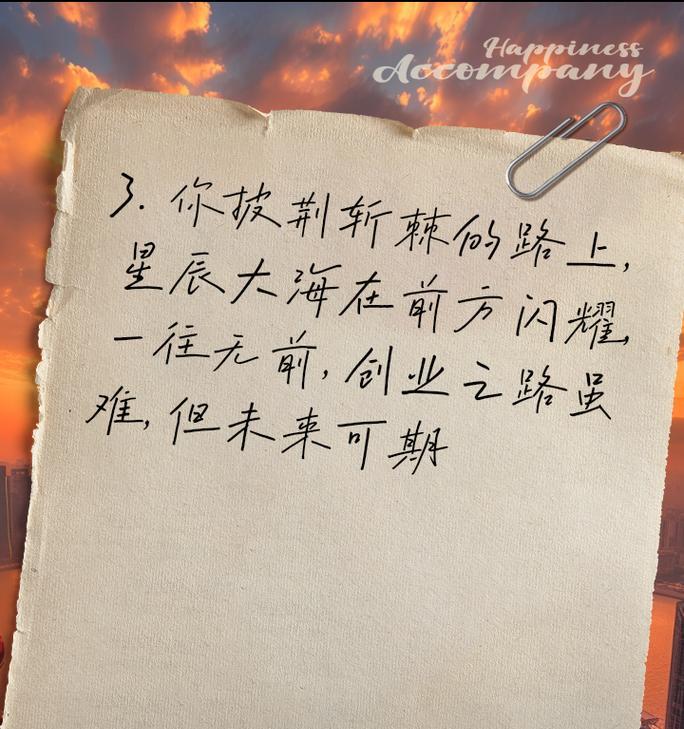 Happiness
Accompany
3. 你披荆斩棘的路上,
星辰大海在前方闪耀,
一往无前, 创业之路虽
难, 但未来可期